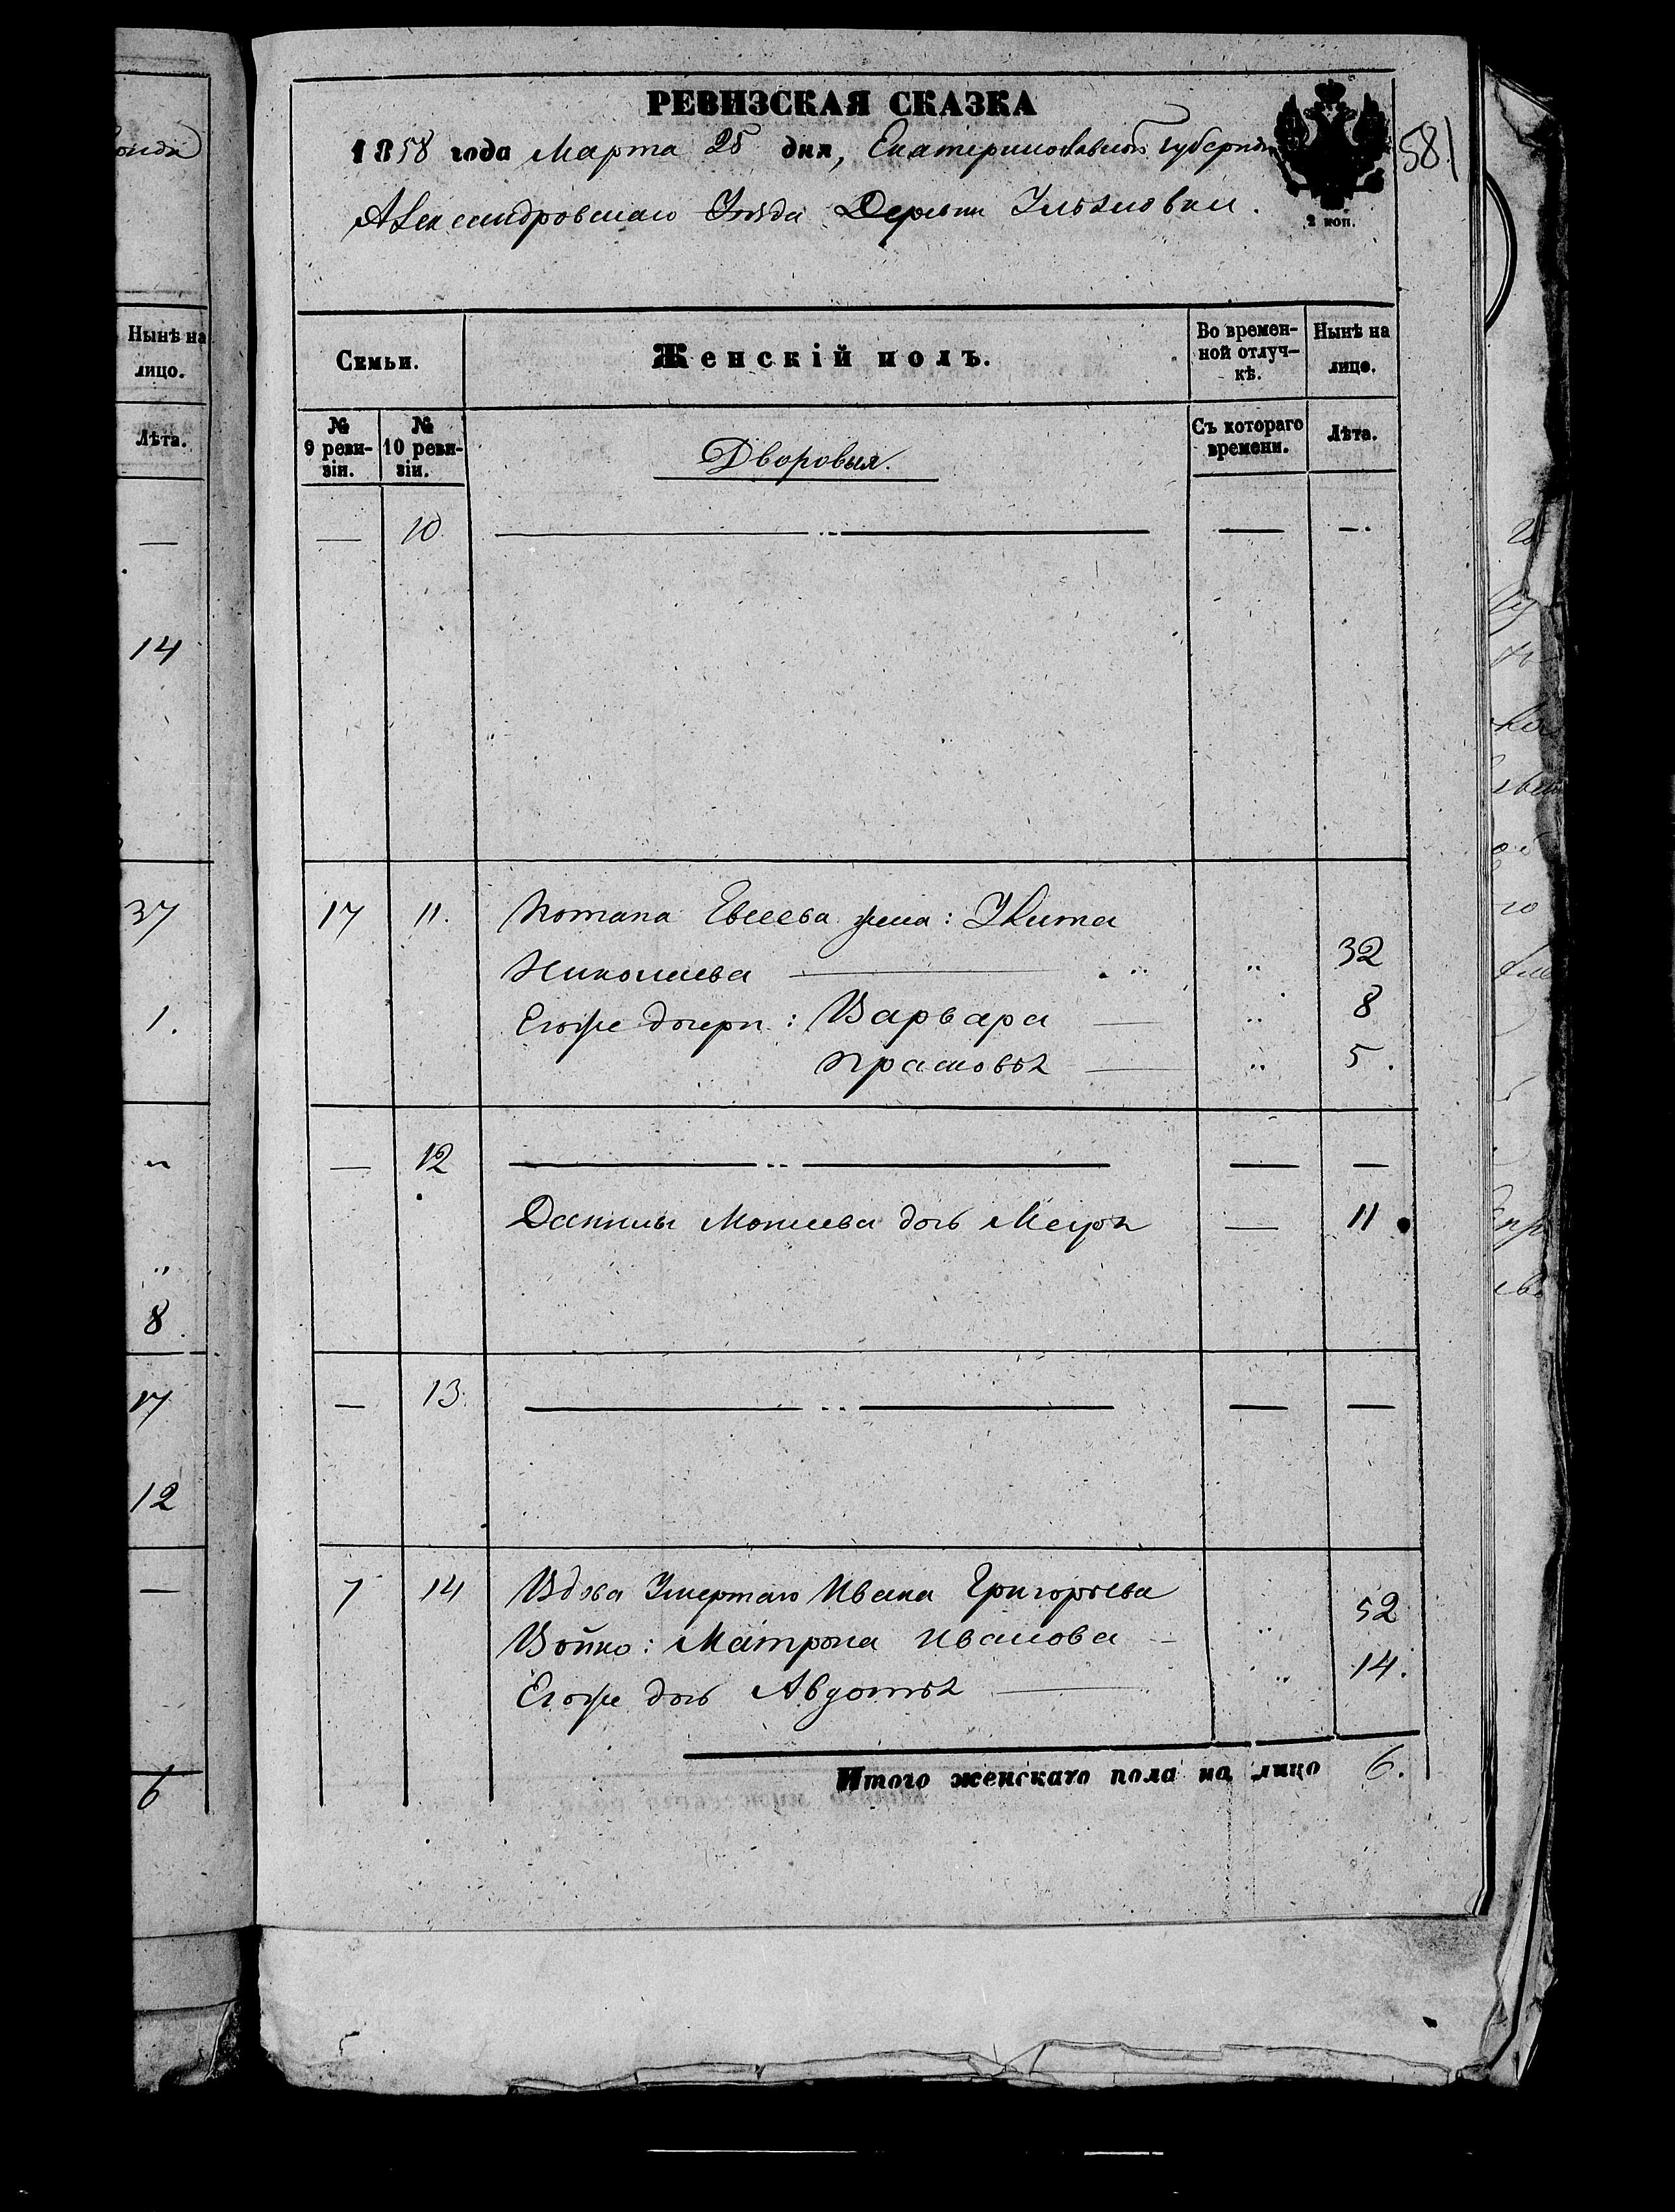 онда
Нынѣ на
лицо.
Лѣта.
—
14
37
1.
"
8
17
12
—
6
РЕВИЗСКАЯ СКАЗКА
1858 года Марта 25 дня, Екатеринославской Губерніи
581
Александровскаго Уѣзда Деревни Ульяновки.
2 коп.
Семьи.
Женскій полъ.
Во времен-
ной отлуч-
кѣ.
Нынѣ на
лицо.
№
9 реви-
зіи.
№
10 реви-
зіи.
Дворовыя.
Съ котораго
времени.
Лѣта.
— 10 — " — — —.
17 11. Потапа Евсеева жена:
Николаева — " " 32
Егоже дочери: Варвара — " 8
Прасковья — " 5.
— 12 — " — — —
Данилы Мокиева дочь — 11
— 13. — " — — —
7 14 Вдова Умершаго Ивана Григорьева
Бойко: Матрона Иванова — " 52
Егоже дочь Авдотья — " 14.
Итого женскаго пола на лицо 6.